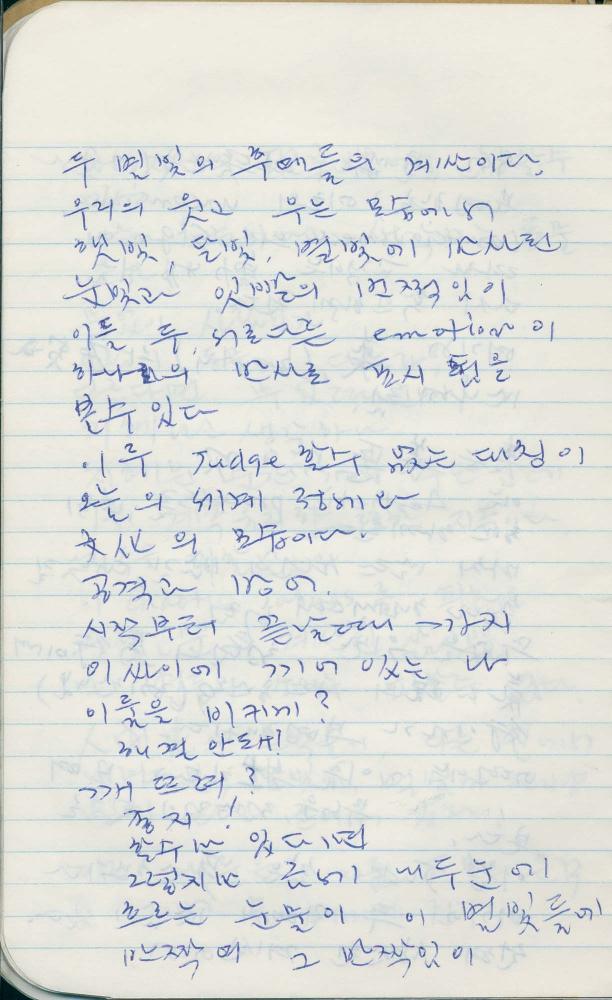 두 별빛의 후예들의 계산이다.
우리의 웃고 우는 모습에서
햇빛, 달빛, 별빛에 반사된
눈빛과 잇빨의 번쩍임이
이들 두, 서로 다른 emotion이
하나의 반사로 표시 됨을
볼수 있다
이루 Judge 할수 없는 대칭이
오늘의 세계
모습이다.
공격과 방어.
시작부터 끝날때 까지
이 싸이에 끼어 있는 나
이들을 비키게?
해결 안되지!
깨뜨려?
좋지!
할수만 있다면
그렇지만 끝에 내 두눈에
흐르는 눈물이 이 별빛들에
반짝여 그 반짝임이